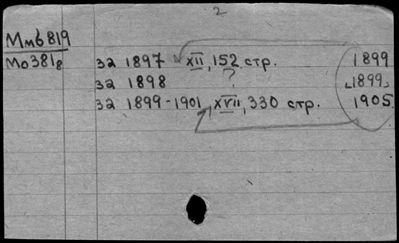 2
Ммб819
Мо381₈ за 1897 XII, 152 стр. 1899
за 1898 ? ⌞1899⌟
за 1899-1901, XVII, 330 стр. 1905